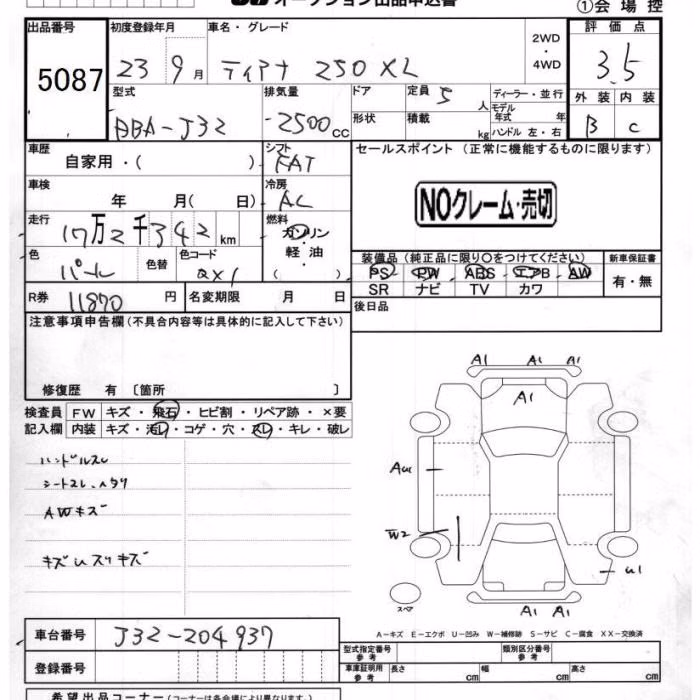 オークション出品申込書 ①会場控
出品番号 初度登録年月 車名・グレード 2WD ・ 4WD 評価点
5087 23 9月 ティアナ 250 XL 3.5
型式 排気量 ドア 定員 5人 ディーラー・並行 外装 内装
モデル年式 年
DBA-J32 2500cc 形状 積載 kg ハンドル 左・右 B C
車歴 シフト セールスポイント (正常に機能するものに限ります)
自家用・( ) FAT
車検 冷房 NOクレーム・売切
年 月( 日) AC
走行 燃料
17万2千342km ガソリン
色 色替 色コード 軽油 装備品 (純正品に限り○をつけてください) 新車保証書
パール QX1 ( ) PS PW ABS エアB AW 有・無
SR ナビ TV カワ
R券 11870円 名変期限 月 日 後日品
注意事項申告欄 (不具合内容等は具体的に記入して下さい)
修復歴 有 〔箇所 〕
検査員 FW キズ・飛石・ヒビ割・リペア跡・×要
記入欄 内装 キズ・汚レ・コゲ・穴・スレ・キレ・破レ
ハンドルスレ
シートスレ、ヘタリ
AWキズ
キズUスリキズ
A1 A1 A1
A1
AU
W2
U1
スペア
A1 A1
A－キズ E－エクボ U－凹み W－補修跡 S－サビ C－腐食 XX－交換済
車台番号 J32-204937 型式指定番号 参考 類別区分番号 参考
登録番号 車庫証明用 参考 長さ cm 幅 cm 高さ cm
希望出品コーナー (コーナーは各会場により異なります。)